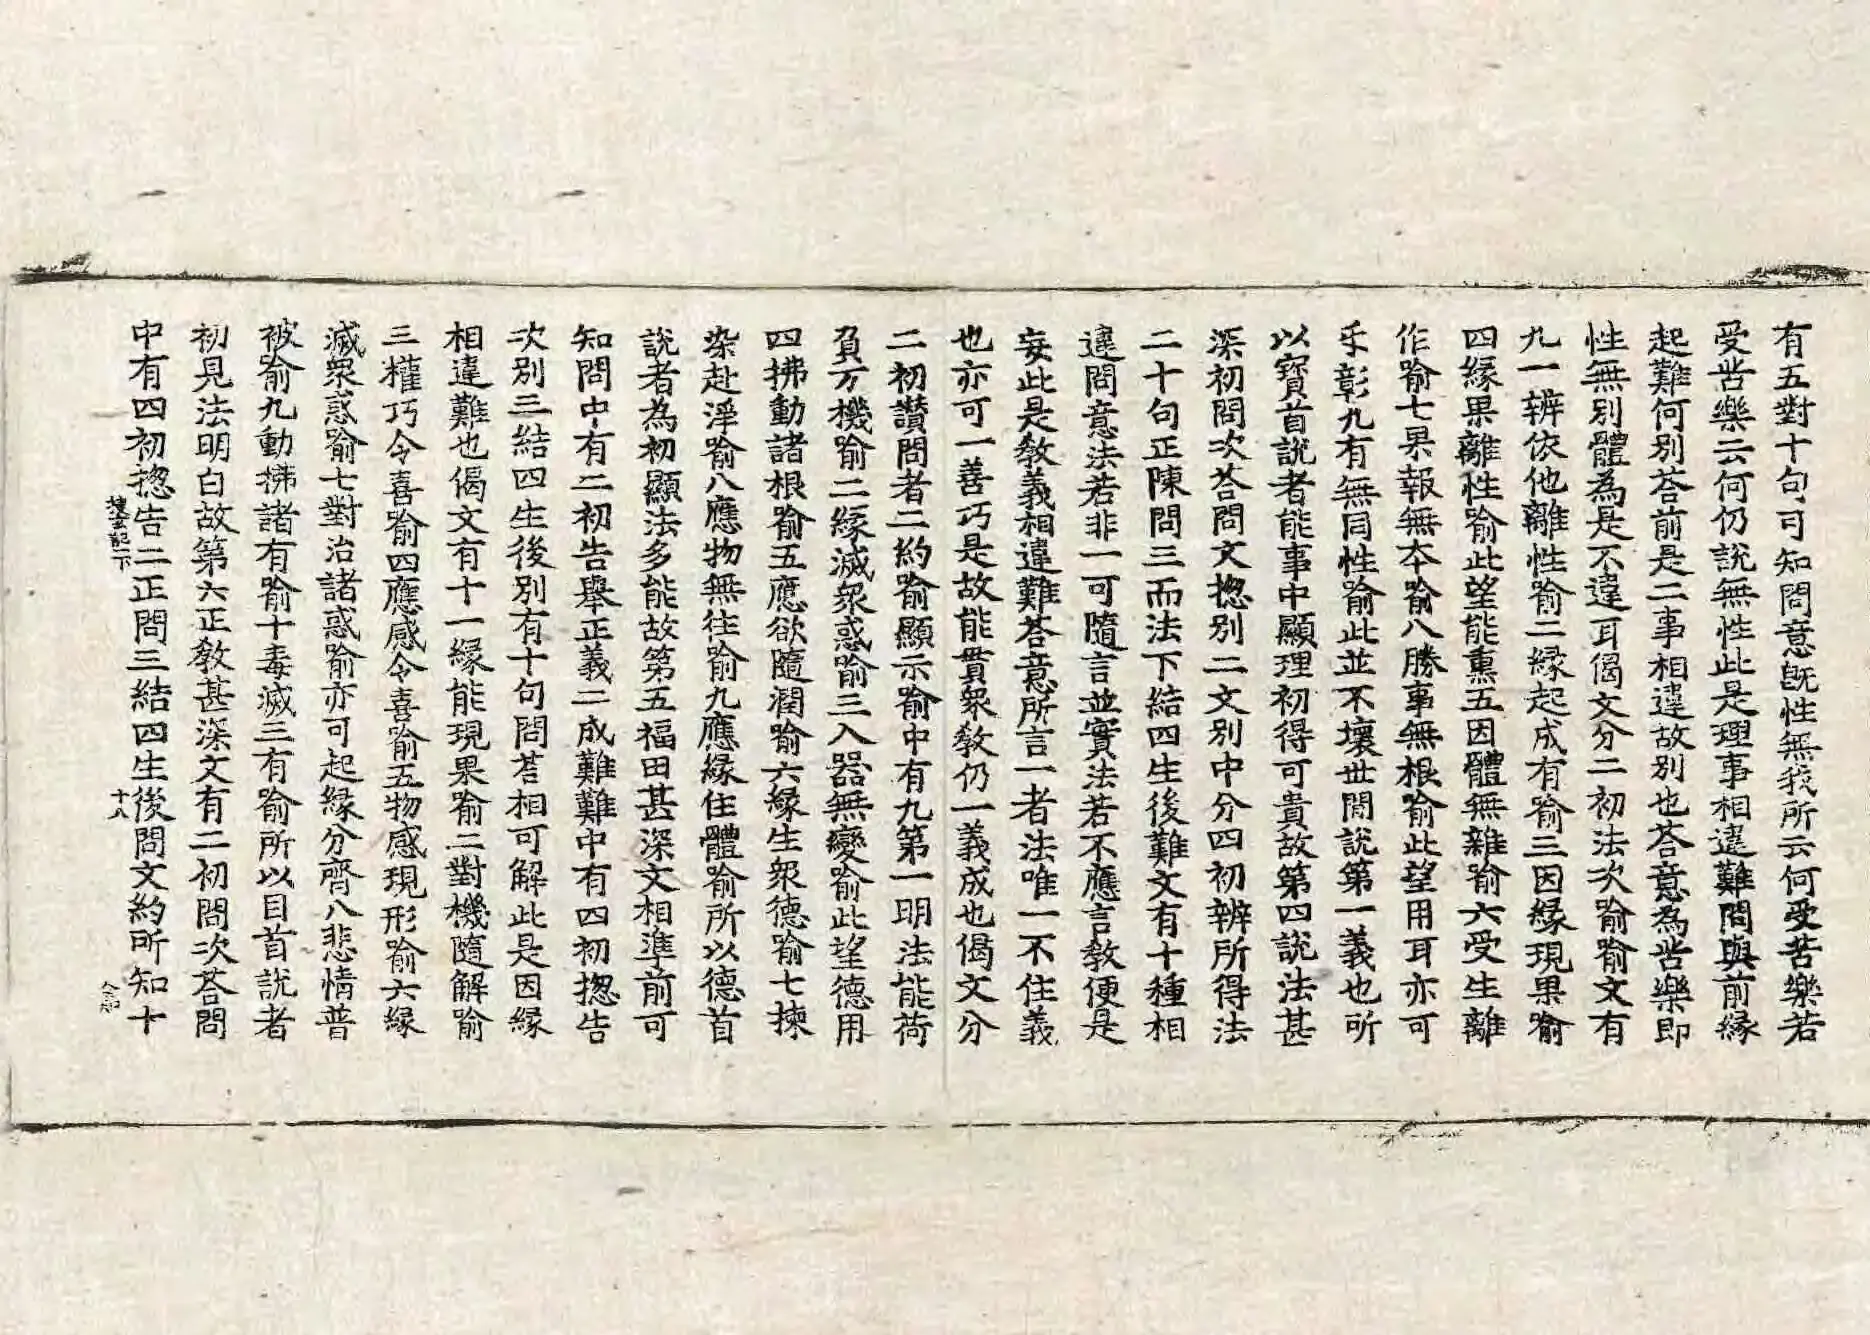 有五對十句可知問意旣性無我所云何受苦樂若
受苦樂云何仍說無性此是理事相違難問與前緣
起難何別荅前是二事相違故別也荅意為苦樂即
性無別體為是不違耳偈文分二初法次喻喻文有
九一辨依他離性喻二緣起成有喻三因緣現果喻
四緣果離性喻此望能熏五因體無雜喻六受生離
作喻七果報無本喻八勝事無根喻此望用耳亦可
乎彰九有無同性喻此並不壞世間說第一義也所
以寶首說者能事中顯理初得可貴故第四說法甚
深初問次荅問文揔別二文別中分四初辨所得法
二十句正陳問三而法下結四生後難文有十種相
違問意法若非一可隨言並實法若不應言教便是
妄此是教義相違難荅意所言一者法唯一不住義
也亦可一善巧是故能貫眾教仍一義成也偈文分
二初讃問者二約喻顯示喻中有九第一明法能荷
負万機喻二緣滅眾惑喻三入器無變喻此望德用
四拂動諸根喻五應欲隨潤喻六緣生眾德喻七揀
染赴淨喻八應物無往喻九應緣住體喻所以德首
說者為初顯法多能故第五福田甚深文相準前可
知問中有二初告舉正義二成難難中有四初揔告
次別三結四生後別有十句問荅相可解此是因緣
相違難也偈文有十一緣能現果喻二對機隨解喻
三權巧令喜喻四應感令喜喻五物感現形喻六緣
滅眾惑喻七對治諸惑喻亦可起緣分齊八悲情普
被喻九動拂諸有喻十毒滅三有喻所以目首說者
初見法明白故第六正教甚深文有二初問次荅問
中有四初揔告二正問三結四生後問文約所知十
搜玄記一下 十八